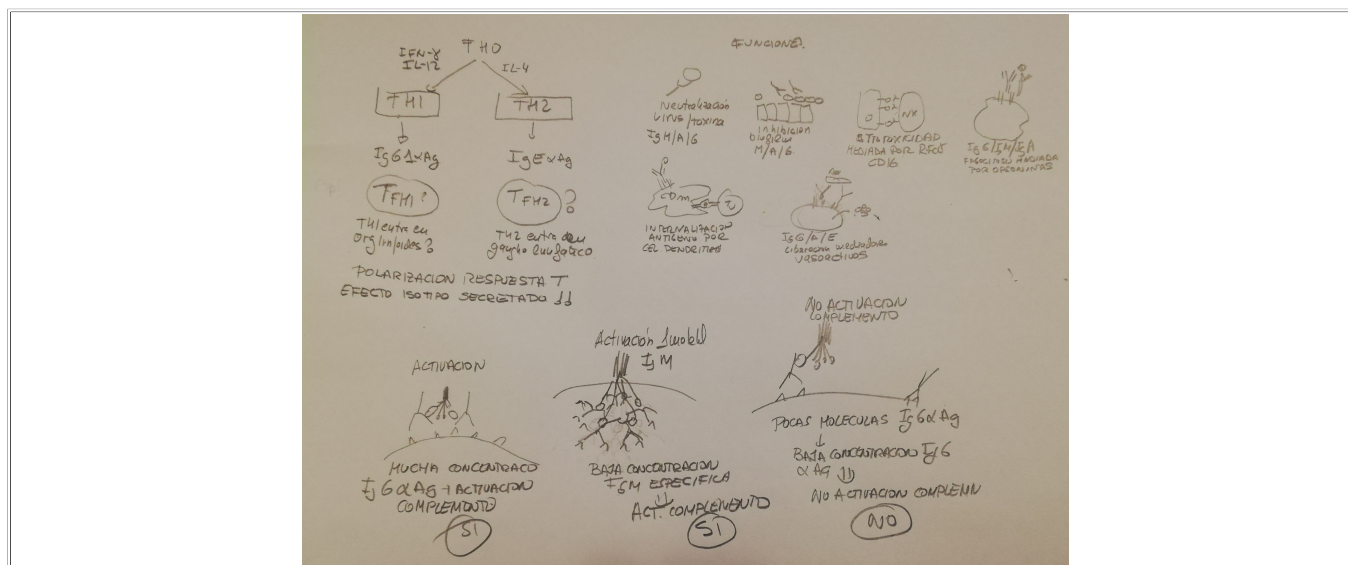 TH0
IFN-γ
IL-12
IL-4
TH1
TH2
IgG1αAg
IgEαAg
TFH1?
TFH2?
TH1 entra en
org linfoides?
TH2 entra en
ganglio linfatico
POLARIZACION RESPUESTA T
EFECTO ISOTIPO SECRETADO
FUNCIONES
Neutralización
virus/toxina
IgM/A/G
inhibicion
M/A/G
NK
CITOTOXICIDAD
MEDIADA POR
CD16
IgG/IgM/IgA
FAGOCITOSIS MEDIADA
POR OPSONINAS
INTERNALIZACION
ANTIGENO POR
CEL DENDRITICAS
IgG/A/E
Liberacion mediadores
vasoactivos
ACTIVACION
MUCHA CONCENTRACO
IgGαAg → ACTIVACION
COMPLEMENTO
SI
Activación 1
IgM
BAJA CONCENTRACION
IgM ESPECIFICA
ACT. COMPLEMENTO
SI
NO ACTIVACION
COMPLEMENTO
POCAS MOLECULAS IgGαAg
BAJA CONCENTRACION IgG
αAg
NO ACTIVACION COMPLEMN
NO